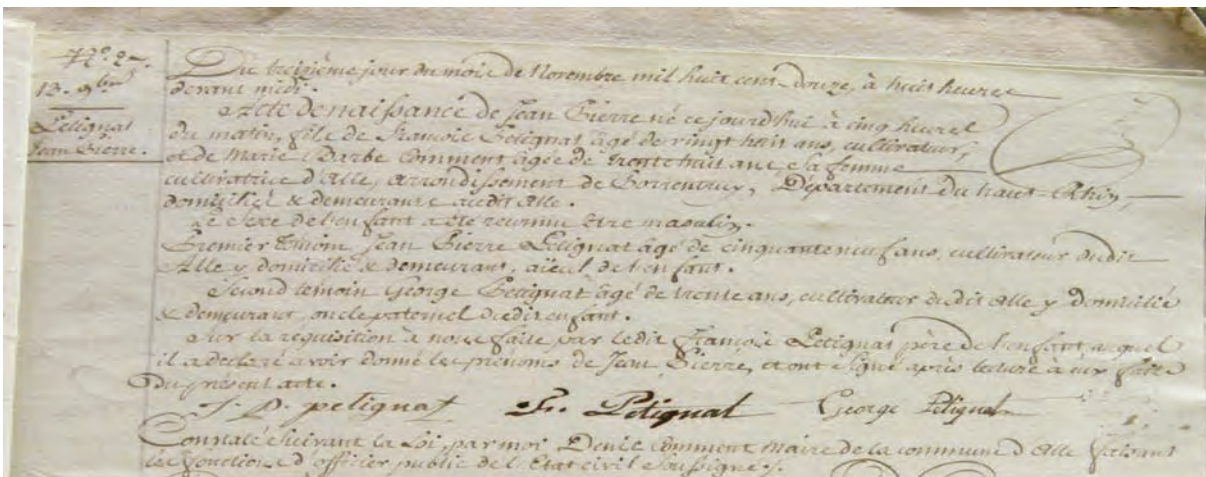 N.° 27.
13. 9bre
Petignat
Jean Pierre.
Du treizième jour du mois de Novembre mil huit cent douze, à huit heures
devant midi.
Acte de naissance de Jean Pierre né ce jourd'hui à cinq heures
du matin, fils de François Petignat âgé de vingt huit ans, cultivateur,
et de Marie Barbe Comment âgée de trente huit ans, sa femme
cultivatrice d'Alle, arrondissement de Porrentruy, Département du haut-Rhin,
domiciliés & demeurants audit Alle.
Le sexe de l'enfant a été reconnu être masculin.
Premier témoin, Jean Pierre Petignat âgé de cinquante neuf ans, cultivateur dudit
Alle y domicilié & demeurant, aïeul de l'enfant.
Second témoin George Petignat âgé de trente ans, cultivateur dudit Alle y domicilié
& demeurant, oncle paternel dudit enfant.
Sur la réquisition à nous faite par ledit François Petignat père de l'enfant auquel
il a déclaré avoir donné les prénoms de Jean Pierre, et ont signé après lecture à eux faite
du présent acte.
J. P. petignat Fr. Petignat George Petignat
Constaté suivant la Loi par moi Denis Comment Maire de la commune d'Alle faisant
les fonctions d'officier public de l'Etat civil soussigné.